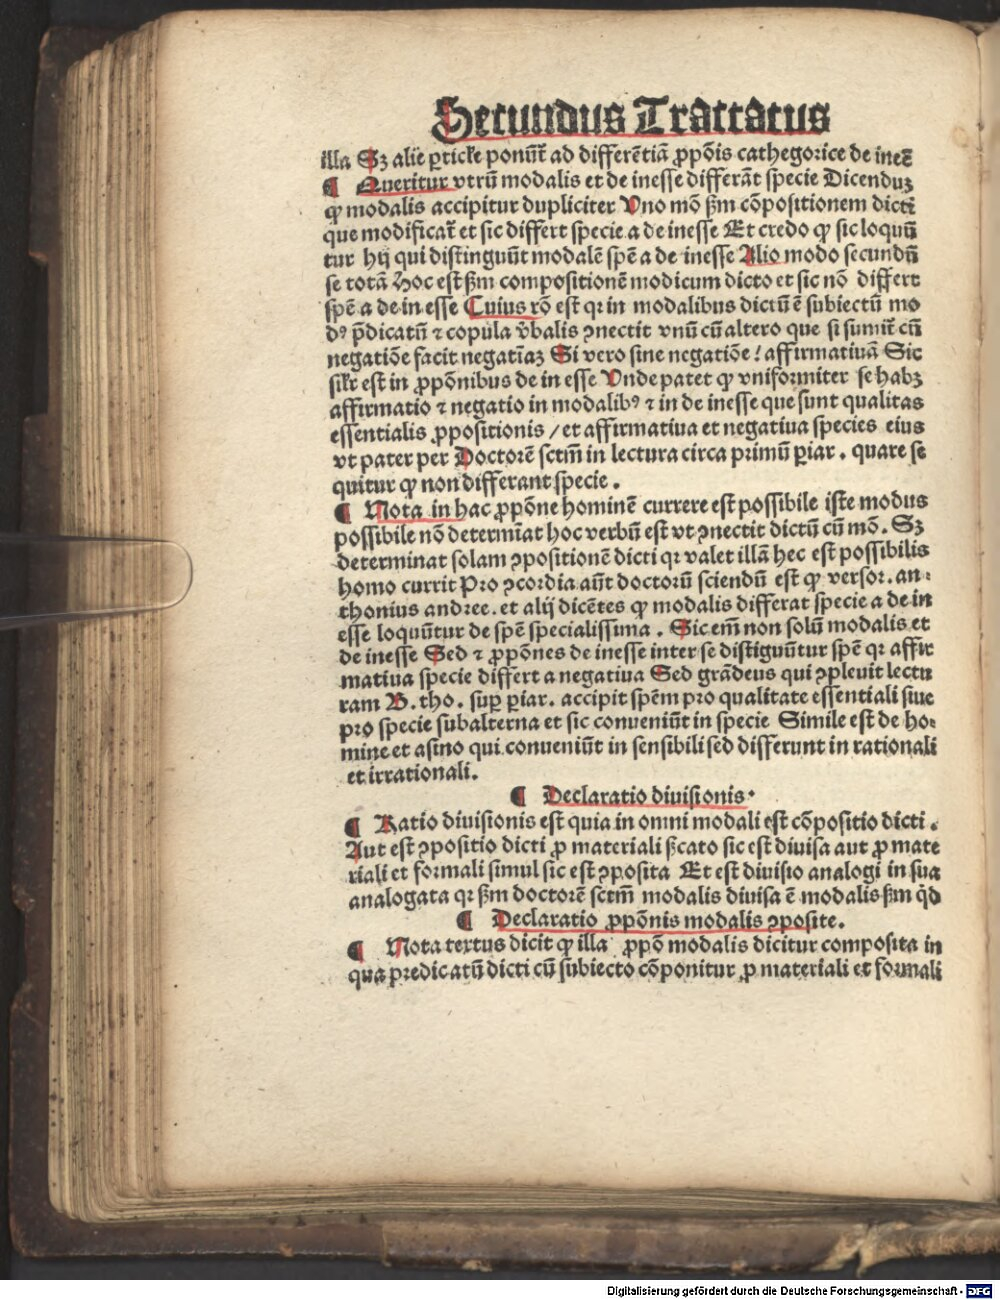 Secundus Tractatus
illa Sꝫ alie ꝑticƚe ponūt᷑ ad differētiā ꝓpōis cathegorice de ineē
¶ Queritur vtrū modalis et de inesse differāt specie Dicenduꝫ
ꝙ modalis accipitur dupliciter Uno mō ẜm cōpositionem dicti
que modificat᷑ et sic differt specie a de inesse Et credo ꝙ sic loquū
tur hij qui distinguūt modalē spē a de inesse Alio modo secundū
se totā Hoc est ẜm compositionē modicum dicto et sic nō differt
spē a de in esse Cuius rō est qꝛ in modalibus dictū ē subiectū mo
dꝰ p̄dicatū ⁊ copula v̄balis ꝯnectit vnū cū altero que si sumit᷑ cū
negatiōe facit negatīaꝫ Si vero sine negatiōe / affirmatiuā Sic
siƚr est in ꝓpōnibus de in esse Unde patet ꝙ vniformiter se habꝫ
affirmatio ⁊ negatio in modalibꝰ ⁊ in de inesse que sunt qualitas
essentialis ꝓpositionis / et affirmatiua et negatiua species eius
vt pater per Doctorē sctm̄ in lectura circa primū ꝑiar. quare se
quitur ꝙ non differant specie.
¶ Nota in hac ꝓpōne hominē currere est possibile iste modus
possibile nō determīat hoc verbū est vt ꝯnectit dictū cū mō. Sꝫ
determinat solam ꝯpositionē dicti qꝛ valet illā hec est possibilis
homo currit Pro ꝯcordia aūt doctorū sciendū est ꝙ versor. an⸗
thonius andree. et alij dicētes ꝙ modalis differat specie a de in
esse loquūtur de spē specialissima. Sic em̄ non solū modalis et
de inesse Sed ⁊ ꝓpōnes de inesse inter se distiguūtur spē qꝛ affir
matiua specie differt a negatiua Sed grādeus qui ꝯpleuit lectu
ram B. tho. suꝑ ꝑiar. accipit spēm pro qualitate essentiali siue
pro specie subalterna et sic conueniūt in specie Simile est de ho⸗
mine et asino qui conueniūt in sensibili sed differunt in rationali
et irrationali.
¶ Declaratio diuisionis.
¶ Ratio diuisionis est quia in omni modali est cōpositio dicti.
Aut est ꝯpositio dicti ꝓ materiali ẜcato sic est diuisa aut ꝓ mate
riali et formali simul sic est ꝯposita Et est diuisio analogi in sua
analogata qꝛ ẜm doctorē sctm̄ modalis diuisa ē modalis ẜm q̇d
¶ Declaratio ꝓpōnis modalis ꝯposite.
¶ Nota textus dicit ꝙ illa ꝓpō modalis dicitur composita in
qua predicatū dicti cū subiecto cōponitur ꝓ materiali et formali
Digitalisierung gefördert durch die Deutsche Forschungsgemeinschaft - DFG